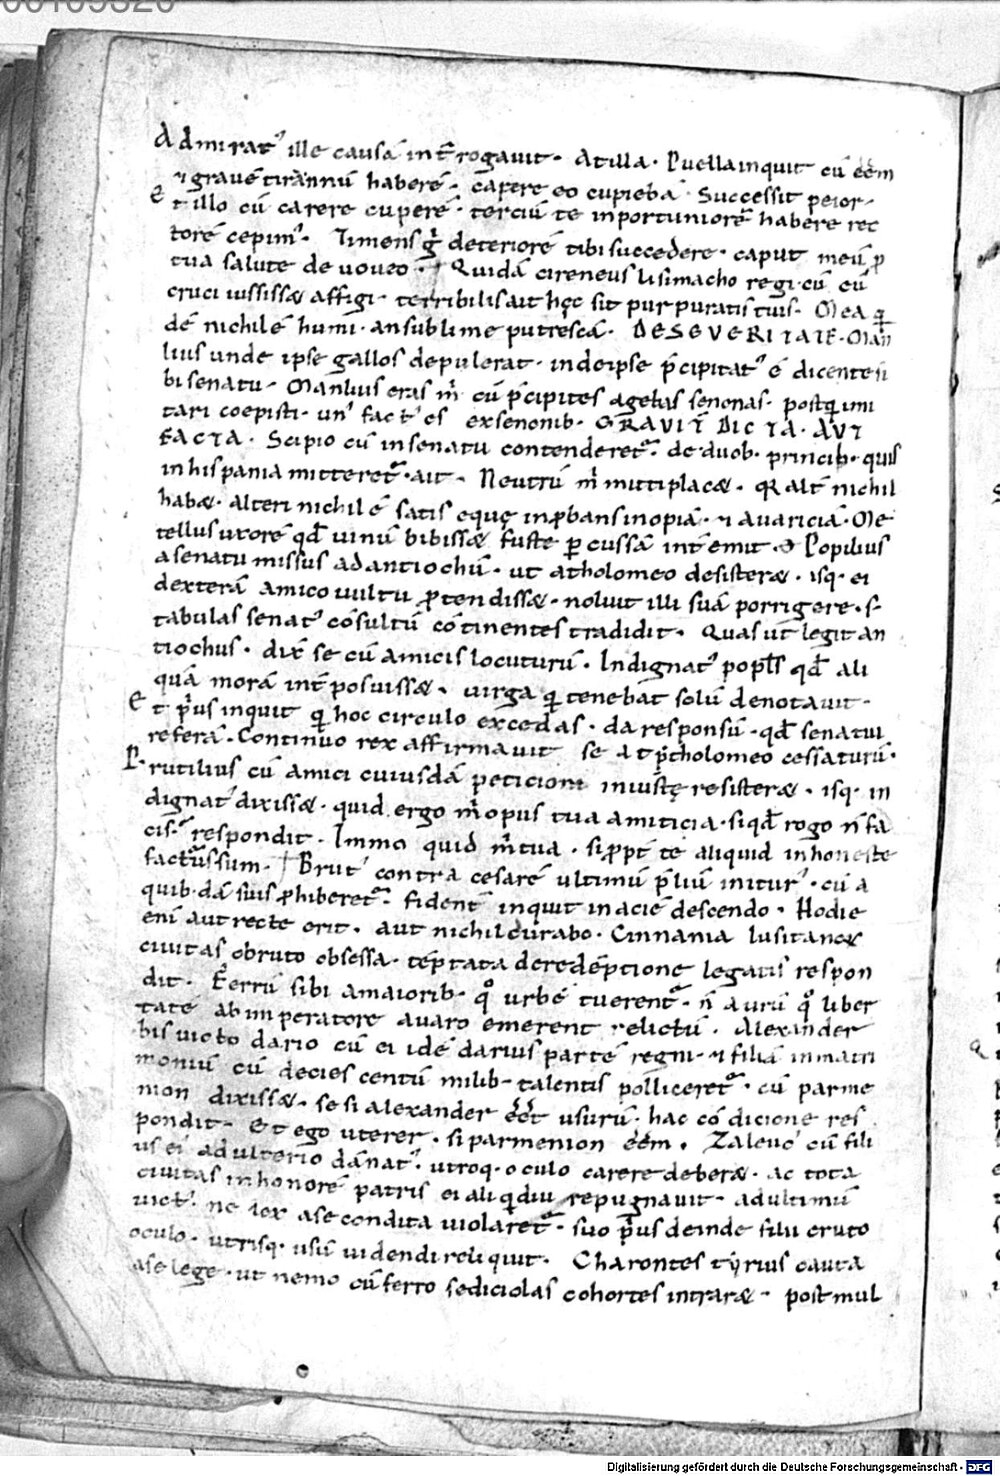 Admirat᾽ ille causā int̄rogauit. Atilla. Puella inquit cū eēm
⁊ grauē tirānnū haberē. capere eo cupiebā. Successit peior.
Et illo cū carere cuperē. terciū te inportuniorē habere rec
torē cepim᾽. Timens g̊ deteriorē tibi succedere. caput meū p̄
tua salute de uoueo. Quidā cireneus lisimacho regi. cū eū
cruci iussissæ affigi. terribilis ait hęc sit purpuratis tuis. Mea q̄
dē nichil ē humi. an sublime putrescā. DE SEVERITATE. Man
lius unde ipse gallos depulerat. inde ipse p̄cipitat᾽ ē dicente si
bi senatu. Manlius eras m̄ cū p̄cipites agebas senonas. postq̄ imi
tari coepisti. un᾽ fact᾽ es ex senonib. GRAVIT̄ DICTA. AVT
FACTA. Scipio cū in senatu contenderet᷑. de duob. princib. quis
in hispania mitteret᷑. ait. Neutrū m̄ mitti placæ. Q alt̄ nichil
habæ. alteri nichil ē satis eque inp̄bans inopiā. ⁊ auariciā. Me
tellus uxorē qđ uinū bibissæ fuste p̄cussā int̄emit. Popilius
a senatu missus ad antiochū. ut atholomeo desisteræ. isq. ei
dexterā amico uultu p̄tendissæ. noluit illi suā porrigere. s.
tabulas senat᾽ cōsultū cōtinentes tradidit. Quas ut legit an
tiochus. dix̄ se cū amicis locuturū. Indignat᾽ popl̄s qđ ali
quā morā int̄posuissæ. uirga q̄ tenebat solū denotauit.
Et p̄us inquit q̄ hoc circulo excedas. da responsū. qđ senatui
referā. Continuo rex affirmauit se a tp̄tholomeo cessaturū.
P. rutilius cū amici cuiusdā peticioni iniuste resisteræ. isq. in
dignat᾽ dixissæ. quid ergo m̄ opus tua amiticia. si qđ rogo n̄ fa
cis. respondit. Immo quid m̄ tua. si p̄pt̄ te aliquid inhoneste
facturus sum. Brut᾽ contra cesarē ultimū p̄liū initur᾽. cū a
quib. dā suis p̄hiberet᷑. fident̄ inquit in aciē descendo. Hodie
enī aut recte erit. aut nichil curabo. Cinnania lusitanoꝝ
ciuitas obruto obsessa. tēptata de redēptione legatis respon
dit. Ferrū sibi a maiorib. q̊ urbē tuerent᷑. n̄ aurū q̊ liber
tatē ab imperatore auaro emerent relictū. Alexander
bis uicto dario cū ei idē darius partē regni. ⁊ filiā in matri
moniū cū decies centū milib. talentis polliceret᷑. cū parme
nion dixissæ. se si alexander eēt usurū. hac cōdicione res
pondit. Et ego uterer. si parmenion eēm. Zaleuc᾽ cū fili
us ei adulterio dānat᾽. utroq. oculo carere deberæ. ac tota
ciuitas in honorē patris ei aliq̄diu repugnauit. ad ultimū
uict᾽. ne lex a se condita uiolaret᷑. suo p̄us deinde filii eruto
oculo. utrisq. usū uidendi reliquit. Charontes tyrius cauta
a se lege. ut nemo cū ferro sediciosas cohortes intraræ. post mul
Digitalisierung gefördert durch die Deutsche Forschungsgemeinschaft - DFG